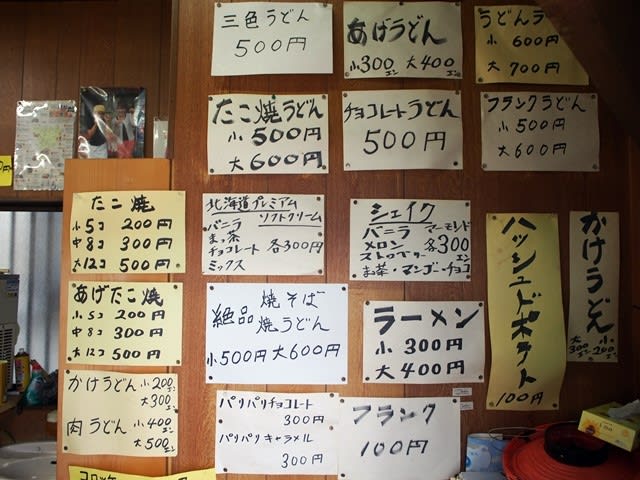 三色うどん
500円
あげうどん
小300エン 大400エン
うどんラ
小 600円
大 700円
たこ焼うどん
小 500円
大 600円
チョコレートうどん
500円
フランクうどん
小 500円
大 600円
たこ焼
小5コ 200円
中8コ 300円
大12コ 500円
北海道プレミアム
ソフトクリーム
バニラ
まっ茶
チョコレート 各300円
ミックス
シェイク
バニラ マーモンド
メロン 各300
ストロベリー エン
お茶・マンゴー・チョコ
ハッシュドポテト
100円
かけうどん
大300エン 小200エン
あげたこ焼
小5コ 200円
中8コ 300円
大12コ 500円
絶品 焼そば
焼うどん
小500円 大600円
ラーメン
小 300円
大 400円
かけうどん 小200エン
大300エン
肉うどん 小400エン
大500エン
パリパリチョコレート
300円
パリパリキャラメル
300円
フランク
100円
コロッケ